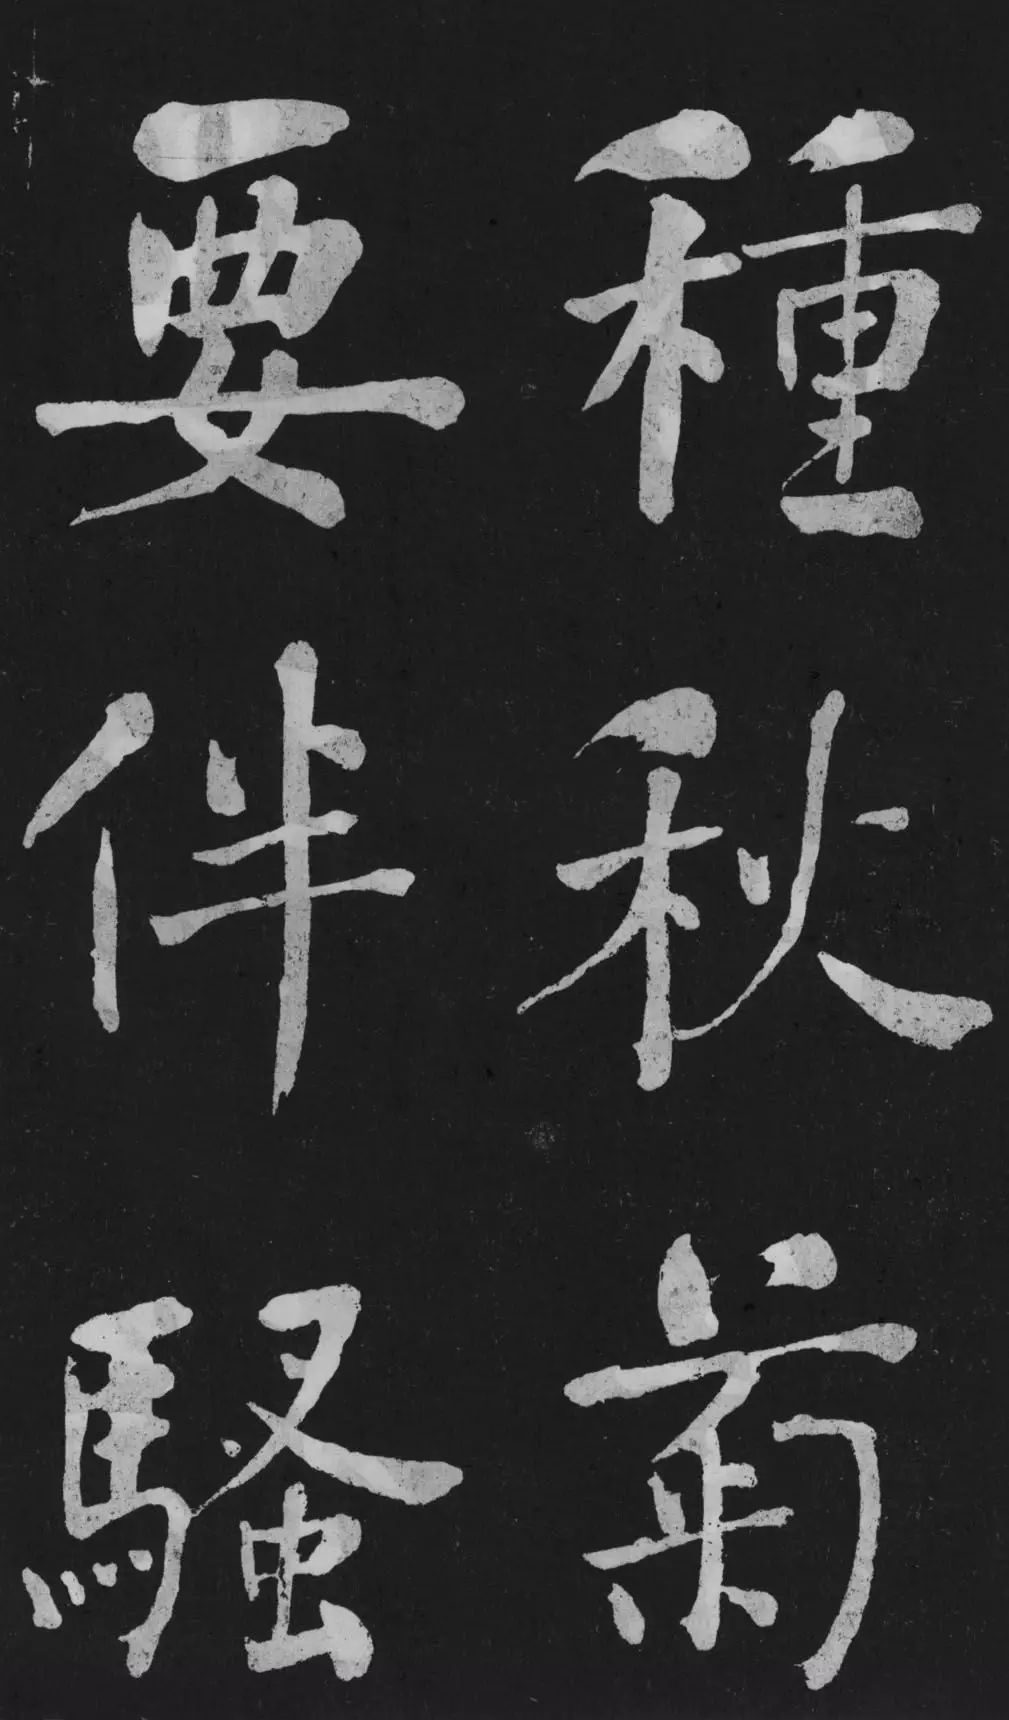 種秋菊
要伴騷